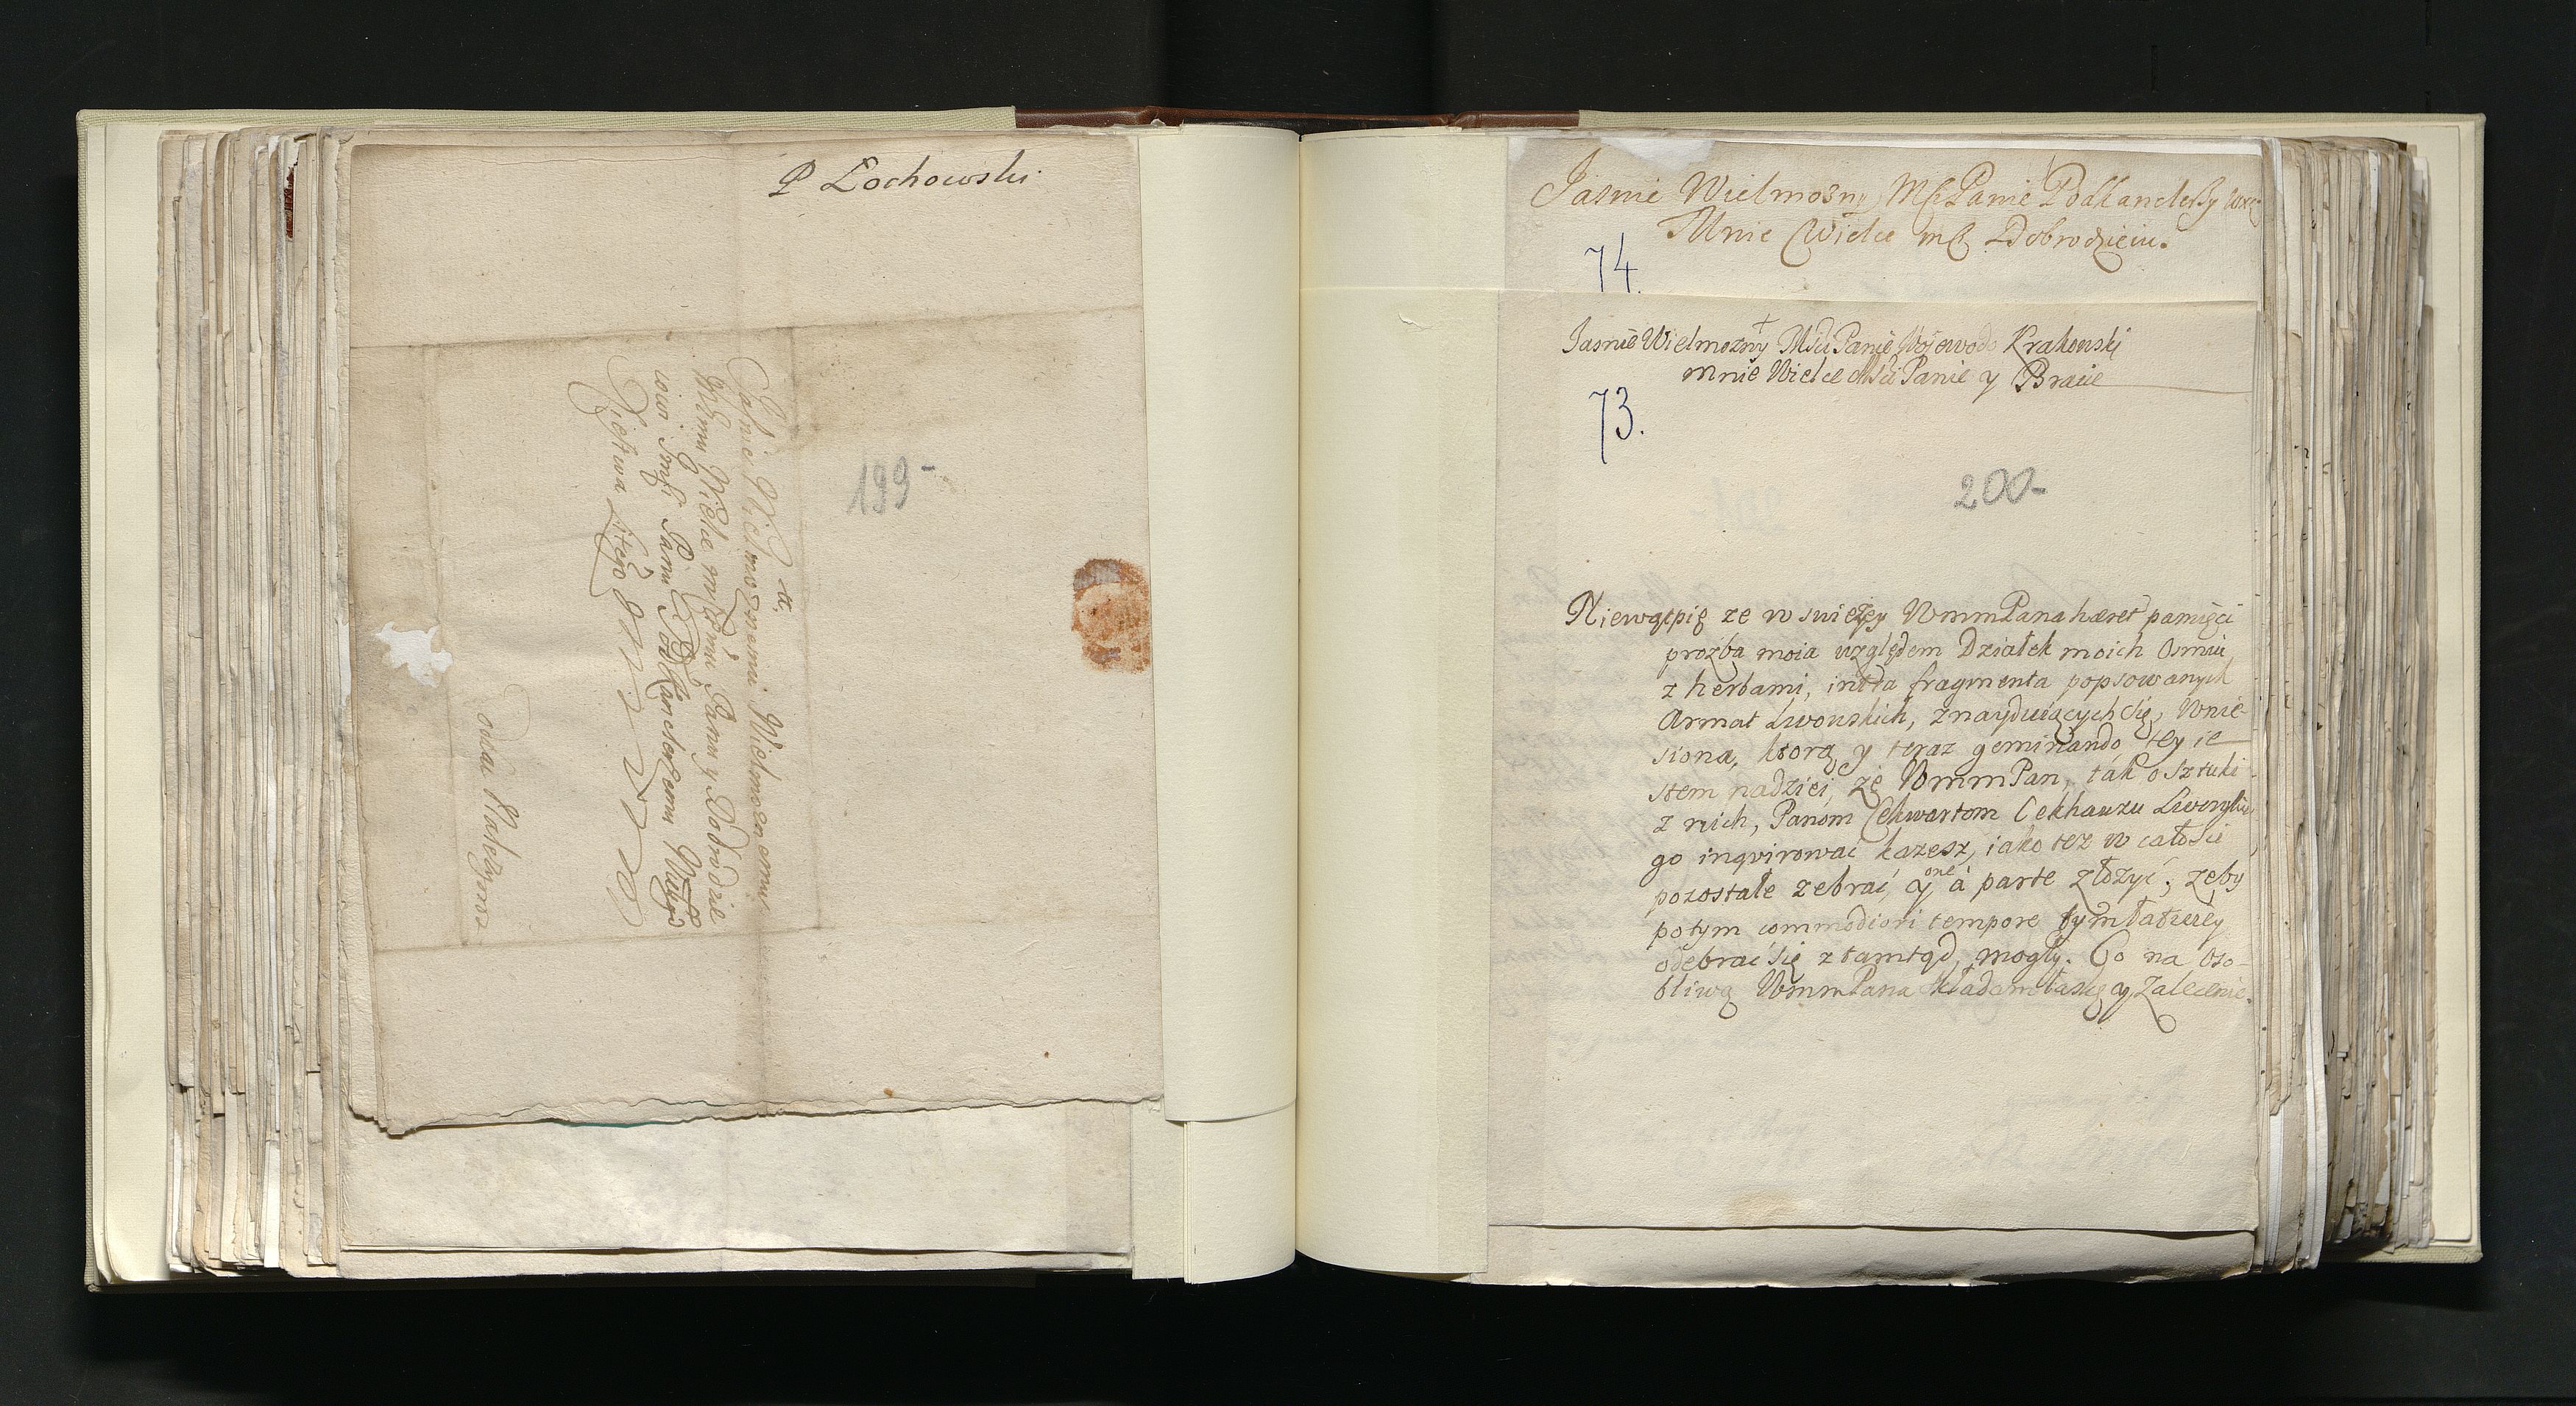 P Lochowski
199-
Jaśnie Wielmożnemu Wielmożnemu
Memu Wielce mśćmu Panu y Dobrodzie
iowi Panu Podkanclerzemu Wielgo
Xięstwa Litego
Jasnie Wielmozny MsPanie Podkanclerzy WXL
Mnie Wielce Ms Dobrodzieiu.
74.
Jasnie Wielmozny MsciPanie Woiewodo Krakowski
mnie Wielce MsciPanie y Bracie
73.
200-
Niewątpię ze w swiezey WmmPana hæret pamięci
prozba moia względem Działek moich Osmiu
z herbami, intra fragmenta popsowanych
Armat Lwowskich, znayduiących się, Wnie-
siona, ktorą y teraz geminando, tey ie
stem nadziei, ze WmmPan, tak o sztuki
z nich, Panom Cekwartom Cekhauzu Lwowskie
go inqvirować kazesz, iako tez w całosci
pozostałe zebrać, y one à parte złozyć, zeby
potym commodiori tempore tym łatwiey
odebrać się ztamtąd mogły. Co na Oso-
bliwą WmmPana kładąc łaskę y Zalecenie.